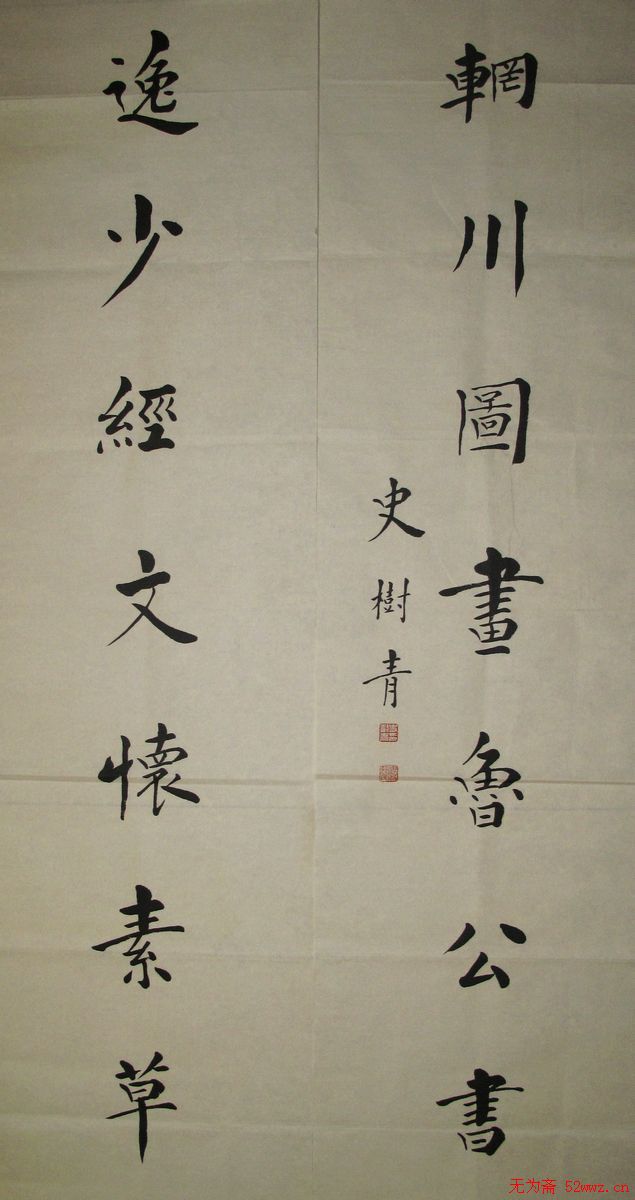 輞川圖畫魯公書
逸少經文懷素草
史樹青
无为斋 52wwz.cn